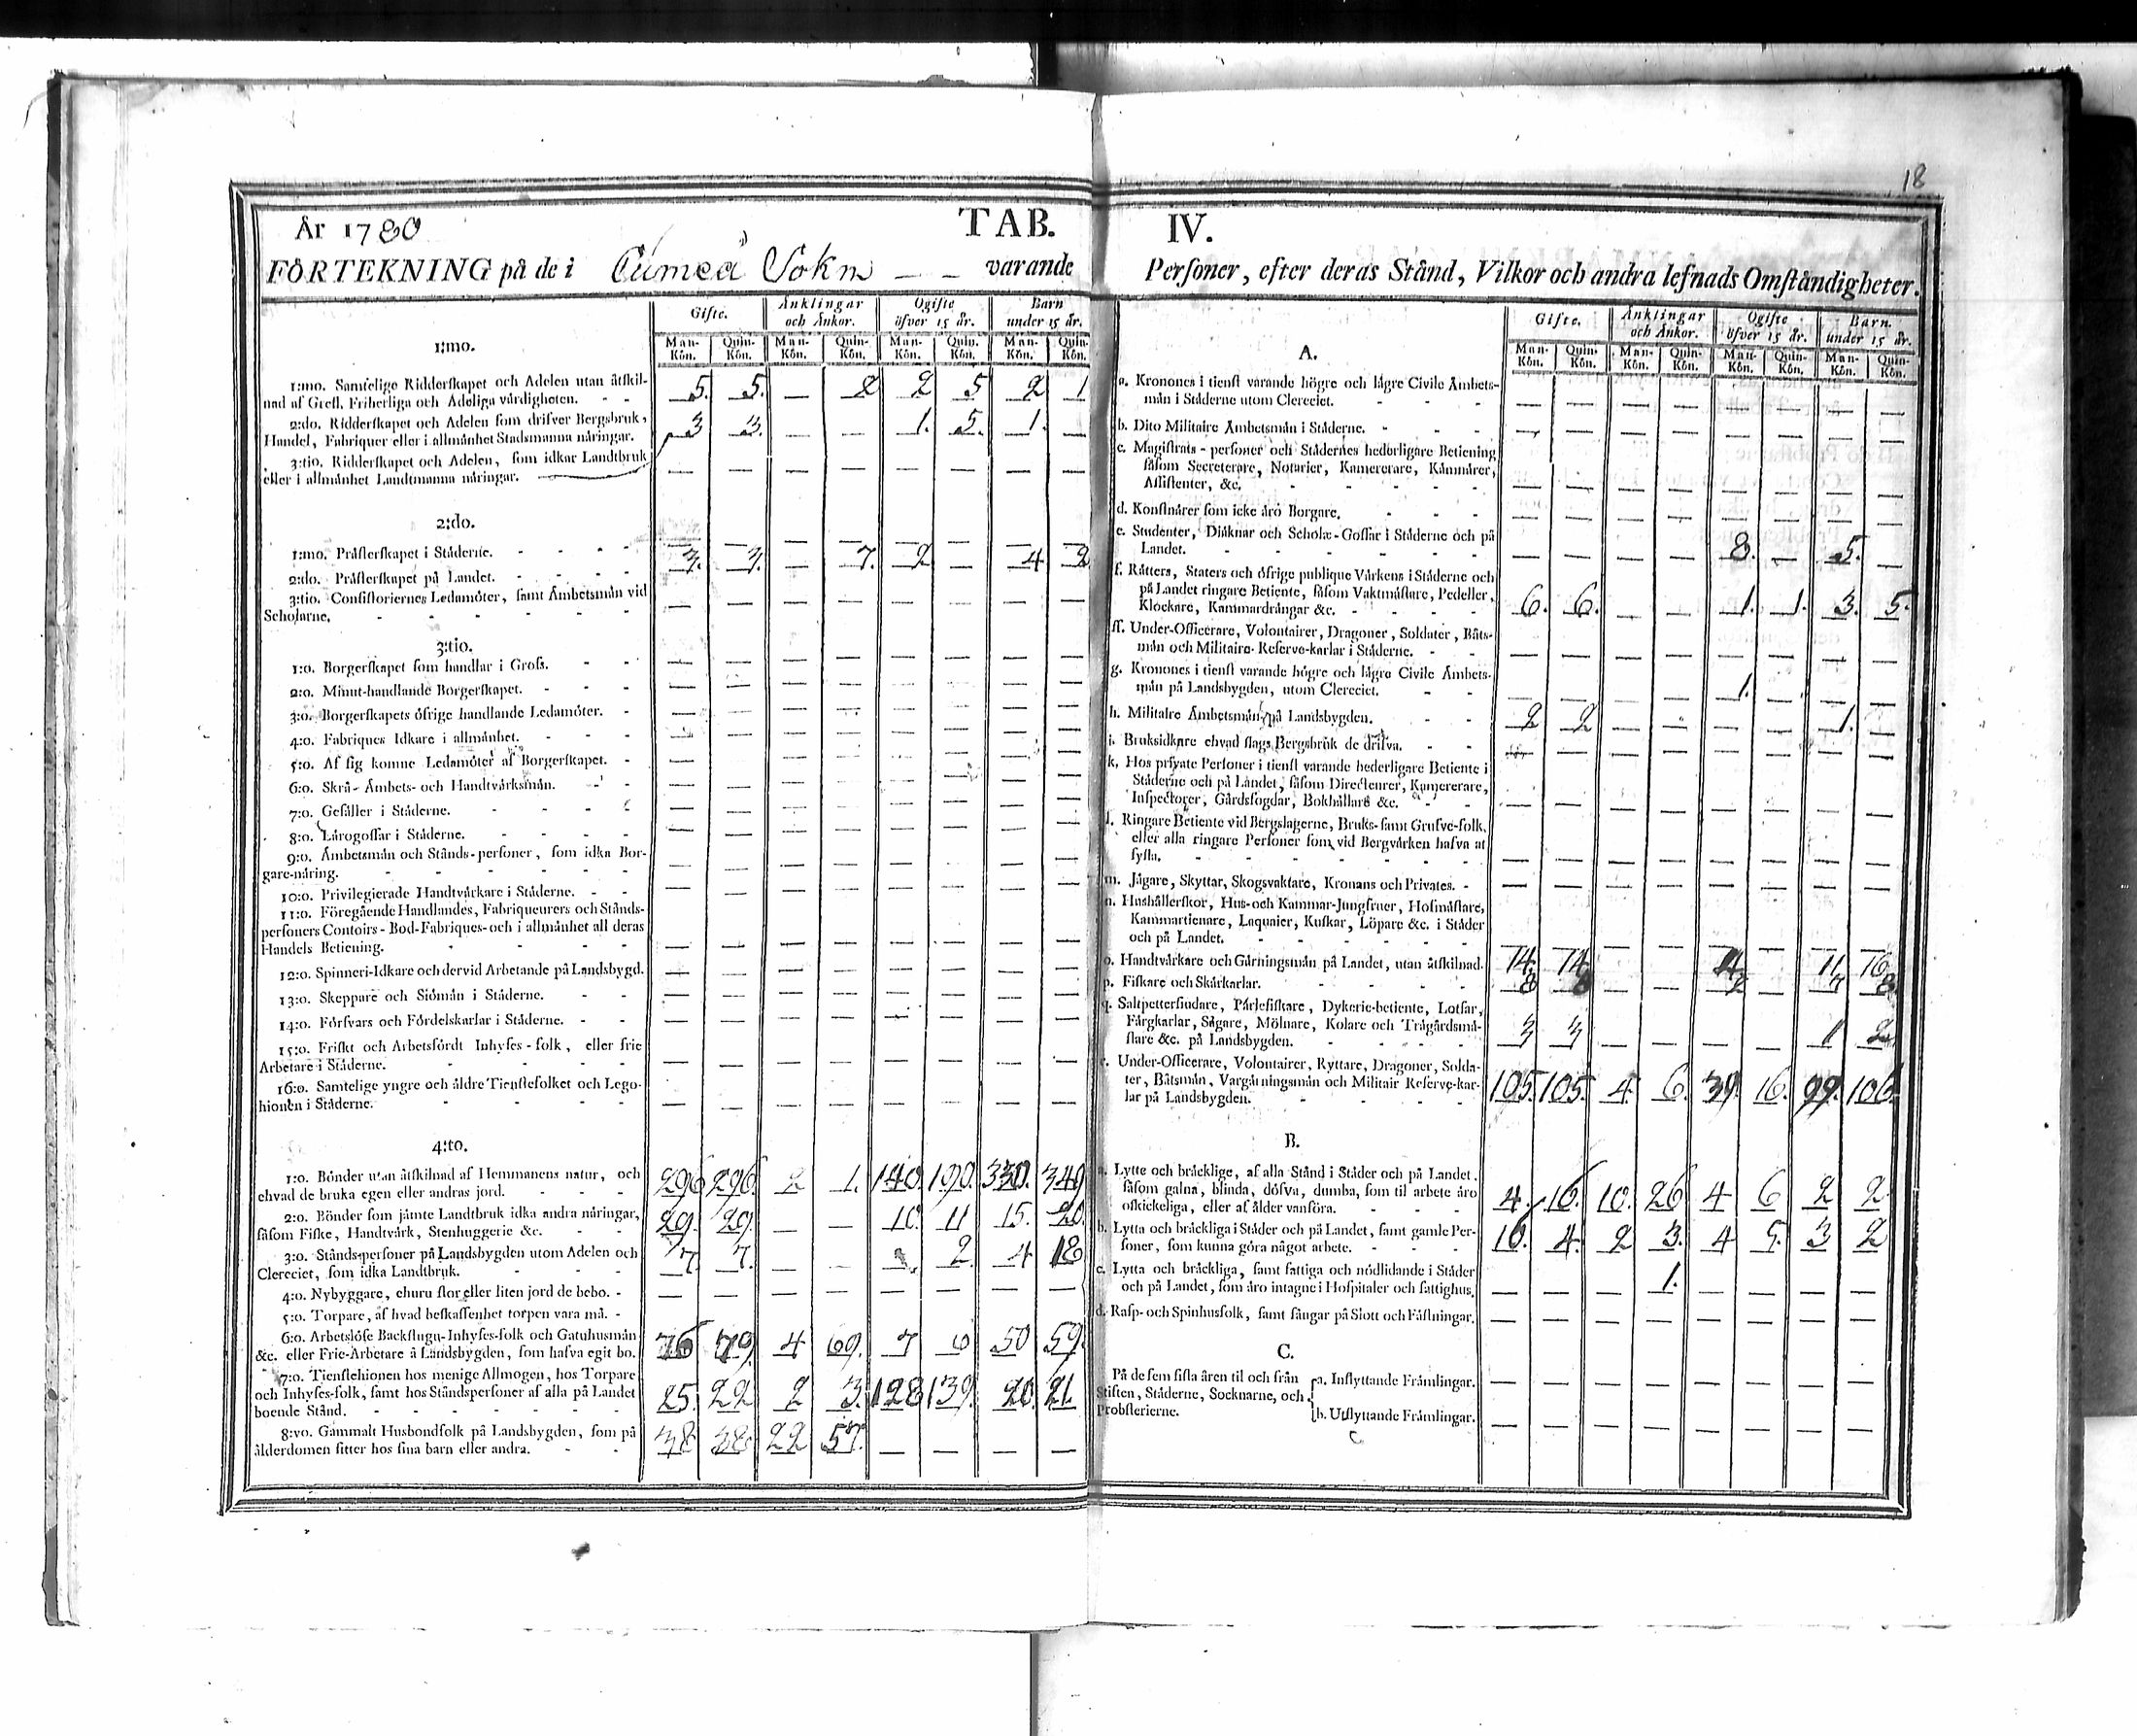 18
År 1780 TAB.
FÖRTEKNING på de i Sokn — — varande
Gifte. Änklingar och Änkor. Ogifte öfver 15 år. Barn under 15 år.
Man-Kön. Quin-Kön. Man-Kön. Quin-Kön. Man-Kön. Quin-Kön. Man-Kön. Quin-Kön.
1:mo.
1:mo. Samtelige Ridderskapet och Adelen utan åtskil-
nad af Grefl. Friherliga och Adeliga värdigheten. - - 5. 5. — 2 2 5 2 1
2:do. Ridderskapet och Adelen som drifver Bergsbruk,
Handel, Fabriquer eller i allmänhet Stadsmanna näringar. 3 3. — — 1. 5. 1. —
3:tio. Ridderskapet och Adelen, som idkar Landtbruk
eller i allmänhet Landtmanna näringar. — — — — — — — —
2:do.
1:mo. Prästerskapet i Städerne. - - - - — — — — — — — —
2:do. Prästerskapet på Landet. - - - - 3. 3. — 7. 2 — 4 2
3:tio. Consistoriernes Ledamöter, samt Ämbetsmän vid
Scholarne. - - - - - — — — — — — — —
3:tio.
1:o. Borgerskapet som handlar i Gross. - - — — — — — — — —
2:o. Minut-handlande Borgerskapet. - - - — — — — — — — —
3:o. Borgerskapets öfrige handlande Ledamöter. - — — — — — — — —
4:o. Fabriques Idkare i allmänhet. - - - — — — — — — — —
5:o. Af sig komne Ledamöter af Borgerskapet. - — — — — — — — —
6:o. Skrå- Ämbets- och Handtvärksmän. - - — — — — — — — —
7:o. Gesäller i Städerne. - - - — — — — — — — —
8:o. Lärogossar i Städerne. - - - - — — — — — — — —
9:o. Ämbetsmän och Stånds-personer, som idka Bor-
gare-näring. - - - - - — — — — — — — —
10:o. Privilegierade Handtvärkare i Städerne. - - — — — — — — — —
11:o. Föregående Handlandes, Fabriqueurers och Stånds-
personers Contoirs-Bod-Fabriques-och i allmänhet all deras
Handels Betiening. - - - - — — — — — — — —
12:o. Spinneri-Idkare och dervid Arbetande på Landsbygd. — — — — — — — —
13:o. Skeppare och Siömän i Städerne. - - — — — — — — — —
14:o. Försvars och Fördelskarlar i Städerne. - - — — — — — — — —
15:o. Friskt och Arbetsfördt Inhyses-folk, eller frie
Arbetare i Städerne. - - - - — — — — — — — —
16:o. Samtelige yngre och äldre Tienstefolket och Lego-
hionen i Städerne. - - - - — — — — — — — —
4:to.
1:o. Bönder utan åtskilnad af Hemmanens natur, och
ehvad de bruka egen eller andras jord. - - - 296 296. 2 1. 140. 190. 330. 349
2:o. Bönder som jämte Landtbruk idka andra näringar,
såsom Fiske, Handtvärk, Stenhuggerie &c. - - 29. 29. — — 10. 11 15. 20.
3:o. Ståndspersoner på Landsbygden utom Adelen och
Clereciet, som idka Landtbruk. - - - 7. 7. — — 2. 4 18
4:o. Nybyggare, ehuru stor eller liten jord de bebo. - — — — — — — — —
5:o. Torpare, af hvad beskaffenhet torpen vara må. -
6:o. Arbetslöse Backstugu-Inhyses-folk och Gatuhusmän
&c. eller Frie-Arbetare å Landsbygden, som hafva eget bo. 76 79. 4 69. 7 6 50 59.
7:o. Tienstehionen hos menige Allmogen, hos Torpare
och Inhyses-folk, samt hos Ståndspersoner af alla på Landet
boende Stånd. - - - - - 25. 22 2 3. 128 139. 20. 21
8:vo. Gammalt Husbondfolk på Landsbygden, som på
ålderdomen sitter hos sina barn eller andra. - - 38. 38. 22 57. — — — —
IV.
Personer, efter deras Stånd, Vilkor och andra lefnads Omständigheter.
Gifte. Änklingar och Änkor. Ogifte öfver 15 år. Barn. under 15 år.
Man-Kön. Quin-Kön. Man-Kön. Quin-Kön. Man-Kön. Quin-Kön. Man-Kön. Quin-Kön.
A.
a. Kronones i tienst varande högre och lägre Civile Ämbets-
män i Städerne utom Clereciet. - - - — — — — — — — —
b. Dito Militaire Ämbetsmän i Städerne. - - - — — — — — — — —
c. Magistrats-personer och Städernes hederligare Betiening
såsom Secreterare, Notarier, Kamererare, Kämnärer,
Assistenter, &c. - - - - - — — — — — — — —
d. Konstnärer som icke äro Borgare. - - - — — — — — — — —
e. Studenter, Diäknar och Scholæ-Gossar i Städerne och på
Landet. - - - - - - — — — — 8. — 5. —
f. Rätters, Staters och öfrige publique Värkens i Städerne och
på Landet ringare Betiente, såsom Vaktmästare, Pedeller,
Klockare, Kammardrängar &c. - - - - 6. 6. — — 1. 1. 3. 5.
ff. Under-Officerare, Volontairer, Dragoner, Soldater, Båts-
män och Militaire-Reserve-karlar i Städerne. - - — — — — — — — —
g. Kronones i tienst varande högre och lägre Civile Ämbets-
män på Landsbygden, utom Clereciet. - - — — — — 1. — — —
h. Militaire Ämbetsmän på Landsbygden. - - 2 2 — — — — 1. —
i. Bruksidkare ehvad slags Bergsbruk de drifva. - - — — — — — — — —
k. Hos private Personer i tienst varande hederligare Betiente i
Städerne och på Landet, såsom Directeurer, Kamererare,
Inspectorer, Gårdsfogdar, Bokhållare &c. - - — — — — — — — —
l. Ringare Betiente vid Bergslagerne, Bruks-samt Grufve-folk,
eller alla ringare Personer som vid Bergvärken hafva at
sysla. - - - - - - — — — — — — — —
m. Jägare, Skyttar, Skogsvaktare, Kronans och Privates. - — — — — — — — —
n. Hushållerskor, Hus-och Kammar-Jungfruer, Hofmästare,
Kammartienare, Laquaier, Kuskar, Löpare &c. i Städer
och på Landet. - - - - - — — — — — — — —
o. Handtvärkare och Gärningsmän på Landet, utan åtskilnad. 14. 14 — — — 11 16
p. Fiskare och Skärkarlar. - - - - 8 8 — — 2 — 7 8
q. Saltpettersiudare, Pärlefiskare, Dykerie-betiente, Lotsar,
Färgkarlar, Sågare, Mölnare, Kolare och Trägårdsmä-
stare &c. på Landsbygden. - - - - 3 3 — — — — 1 2
r. Under-Officerare, Volontairer, Ryttare, Dragoner, Solda-
ter, Båtsmän, Vargäringsmän och Militair Reserve-kar-
lar på Landsbygden. - - - - 105. 105. 4. 6. 39. 16. 99. 106.
B.
a. Lytte och bräcklige, af alla Stånd i Städer och på Landet.
såsom galna, blinda, döfva, dumba, som til arbete äro
oskickeliga, eller af ålder vanföra. - - - 4. 16. 10. 26 4 6 2 2
b. Lytta och bräckliga i Städer och på Landet, samt gamle Per-
soner, som kunna göra något arbete. - - - 10. 4. 2 3. 4 5. 3 2
c. Lytta och bräckliga, samt fattiga och nödlidande i Städer
och på Landet, som äro intagne i Hospitaler och fattighus. — — — 1. — — — —
d. Rasp-och Spinhusfolk, samt fångar på Slott och Fästningar. — — — — — — — —
C.
På de fem sista åren til och från
Stiften, Städerne, Socknarne, och
Probsterierne.
a. Inflyttande Främlingar. — — — — — — — —
b. Utflyttande Främlingar. — — — — — — — —